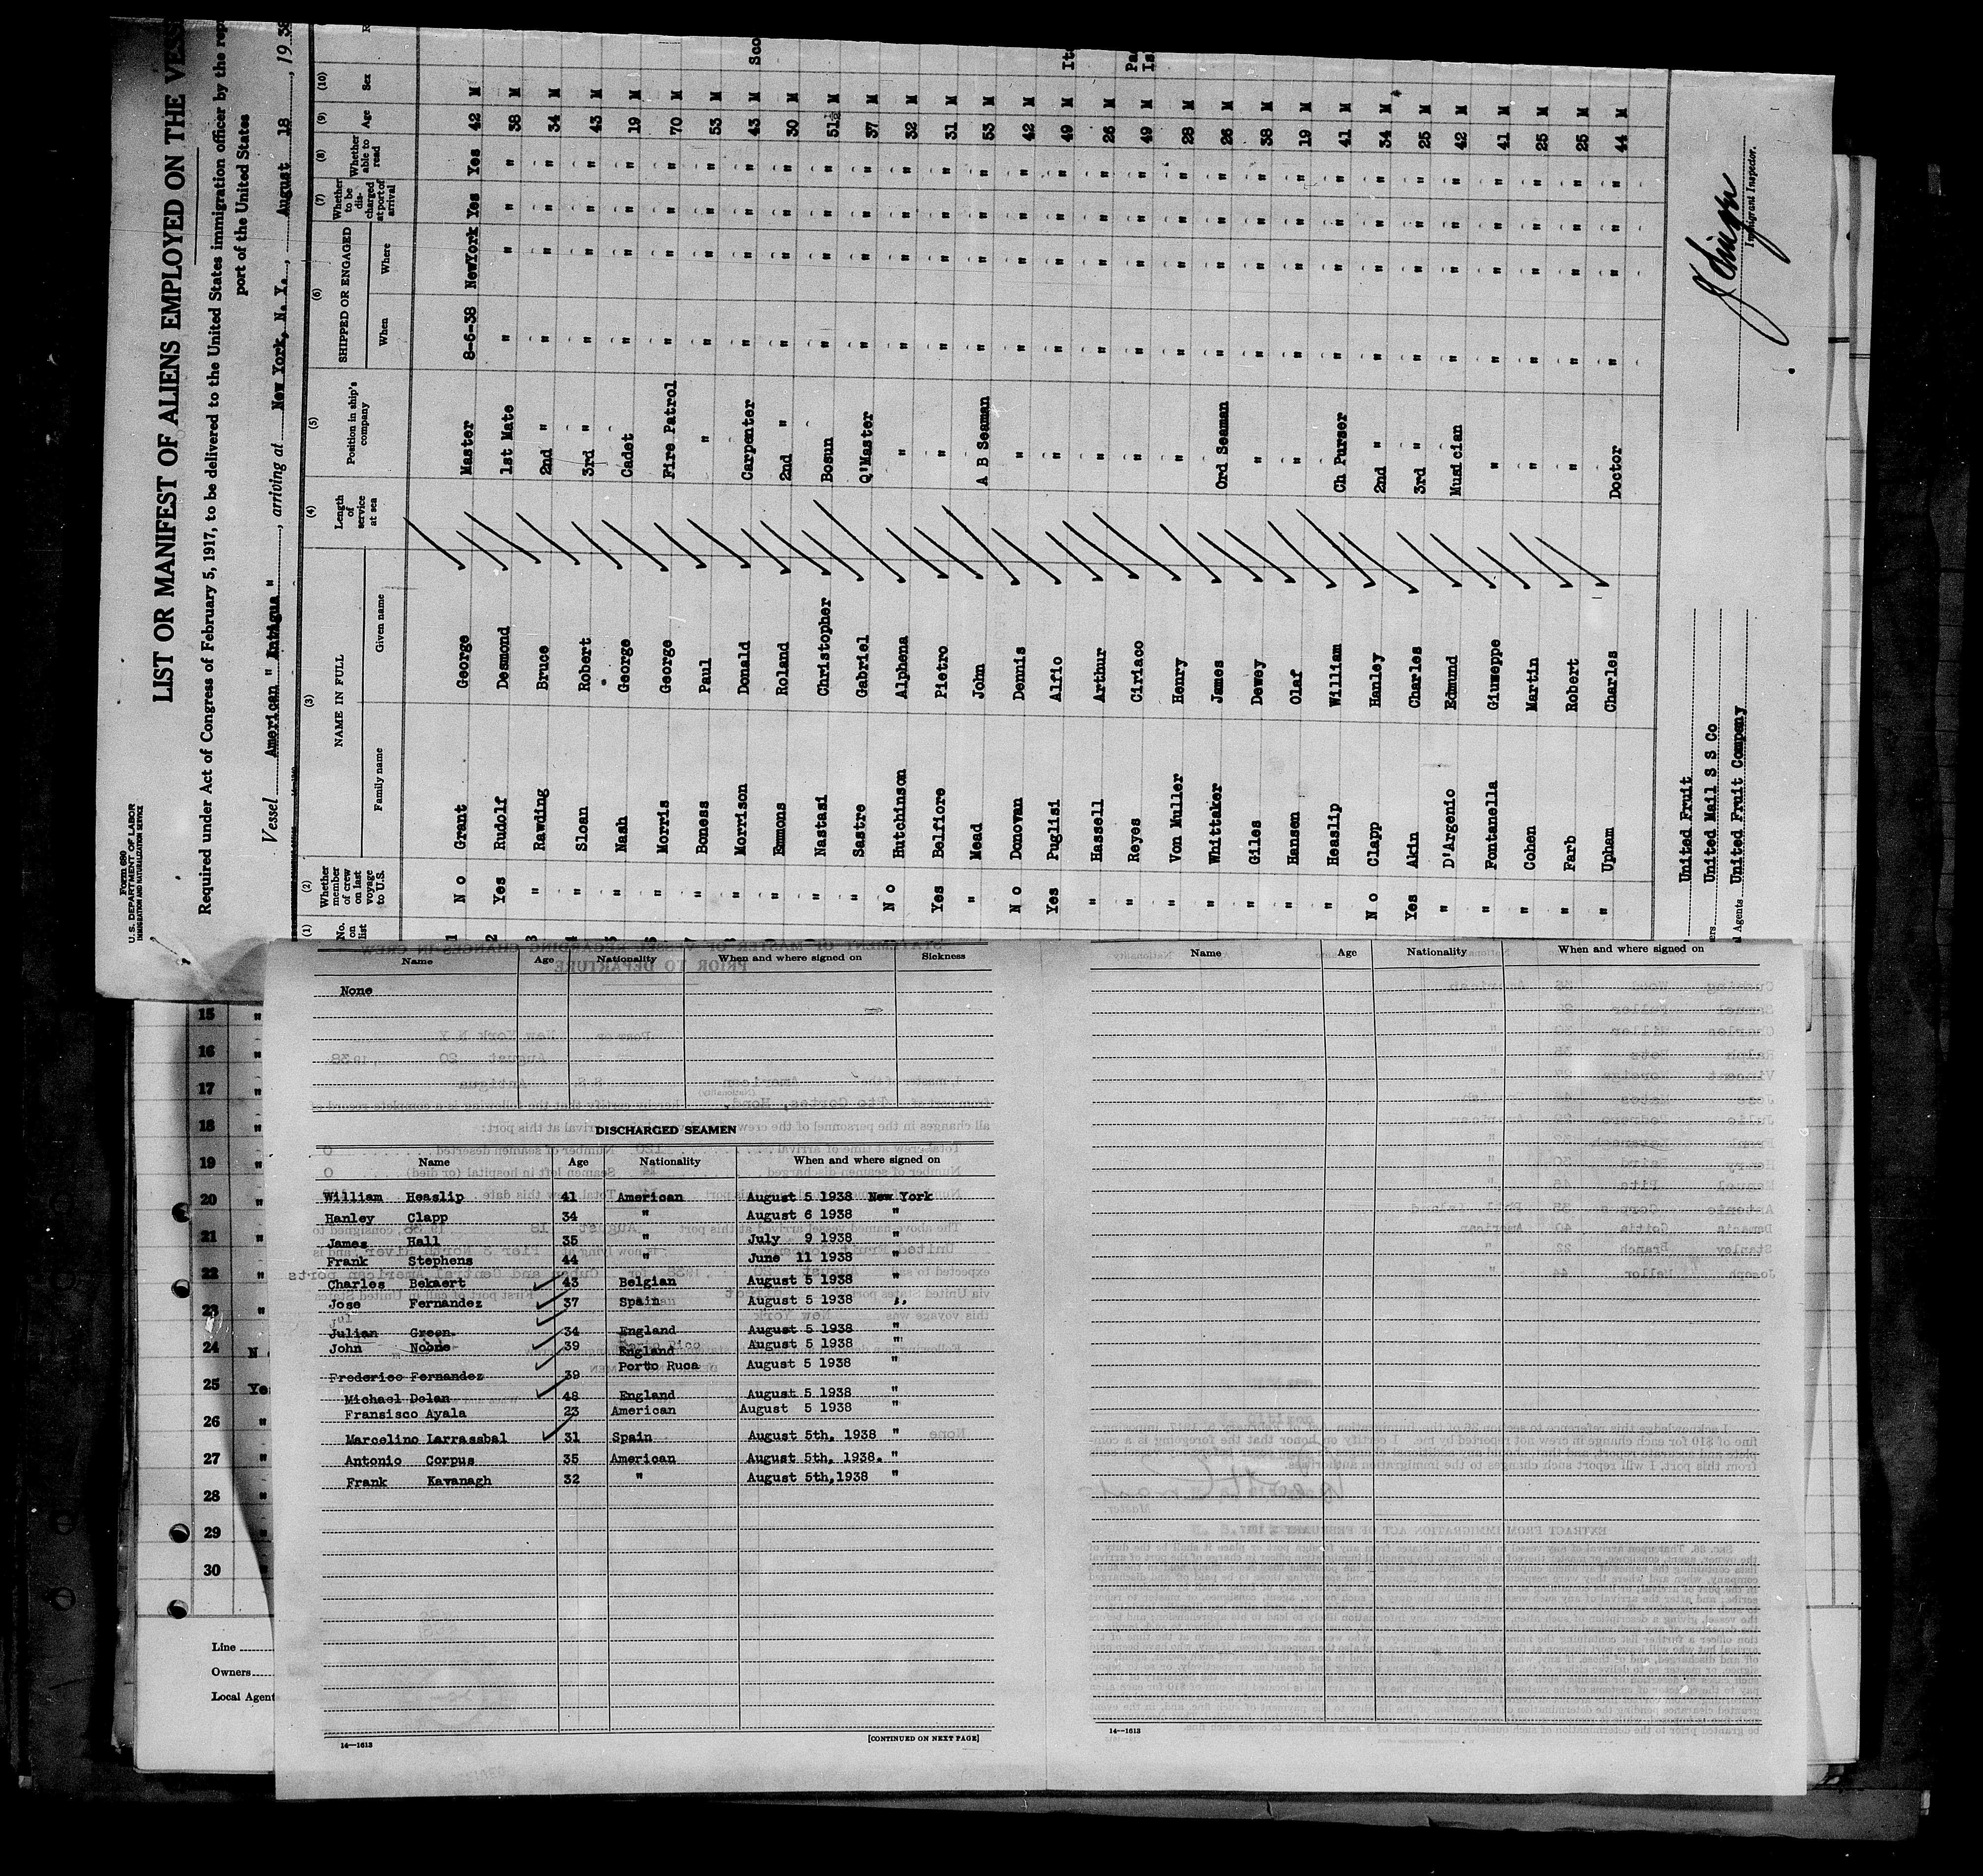 Form 680
U. S. DEPARTMENT OF LABOR
IMMIGRATION AND NATURALIZATION SERVICE
LIST OR MANIFEST OF ALIENS EMPLOYED ON THE VESS
Required under Act of Congress of February 5, 1917, to be delivered to the United States immigration officer by the rep
port of the United States
Vessel American " Antigua ", arriving at New York, N. Y., August 18, 1938
(1) (2) (3) (4) (5) (6) (7) (8) (9) (10)
No. on list Whether member of crew on last voyage to U.S. NAME IN FULL Family name Given name Length of service at sea Position in ship's company SHIPPED OR ENGAGED When Where Whether to be discharged at port of arrival Whether able to read Age Sex
1 N o Grant George Master 8-6-38 NewYork Yes Yes 42 M
2 Yes Rudolf Desmond 1st Mate " " " " 38 M
3 " Rawding Bruce 2nd " " " " " 34 M
4 " Sloan Robert 3rd " " " " " 43 M
5 " Nash George Cadet " " " " 19 M
6 " Morris George Fire Patrol " " " " 70 M
7 " Boness Paul " " " " " 53 M
8 " Morrison Donald Carpenter " " " " 43 M Sco
" Emmons Roland 2nd " " " " " 30 M
" Nastasi Christopher Bosun " " " " 51 M
" Sastre Gabriel Q'Master " " " " 37 M
N o Hutchinson Alphena " " " " " 32 M
Yes Belfiore Pietro " " " " " 31 M
" Mead John A B Seaman " " " " 53 M
N o Donovan Dennis " " " " " 42 M
Yes Puglisi Alfio " " " " " 49 M Ita
" Hassell Arthur " " " " " 26 M
" Reyes Ciriaco " " " " " 49 M Pa Is
" Von Muller Henry " " " " " 28 M
" Whittaker James Ord Seaman " " " " 26 M
" Giles Dewey " " " " " 38 M
" Hansen Olaf " " " " " 19 M
" Heaslip William Ch Purser " " " " 41 M
N o Clapp Hanley 2nd " " " " " 34 M
Yes Akin Charles 3rd " " " " " 25 M
" D'Argenio Edmund Musician " " " " 42 M
" Fontanella Giuseppe " " " " " 41 M
" Cohen Martin " " " " " 25 M
" Farb Robert " " " " " 25 M
" Upham Charles Doctor " " " " 44 M
United Fruit
ers United Mail S S Co
l Agents United Fruit Company
Immigrant Inspector.
Name Age Nationality When and where signed on Sickness
None
DISCHARGED SEAMEN
Name Age Nationality When and where signed on
William Heaslip 41 American August 5 1938 New York
Hanley Clapp 34 " August 6 1938 "
James Hall 35 " July 9 1938 "
Frank Stephens 44 " June 11 1938 "
Charles Bekaert 43 Belgian August 5 1938 "
Jose Fernandez 37 Spain August 5 1938 "
Julian Green 34 England August 5 1938 "
John Noone 39 England August 5 1938 "
Frederico Fernandez 39 Porto Ruca August 5 1938 "
Michael Dolan 48 England August 5 1938 "
Fransisco Ayala 23 American August 5 1938 "
Marcelino Larrassbal 31 Spain August 5th, 1938 "
Antonio Corpus 35 American August 5th, 1938. "
Frank Kavanagh 32 " August 5th,1938 "
14—1613
[CONTINUED ON NEXT PAGE]
Name Age Nationality When and where signed on
14—1613
15 "
16 "
17 "
18 "
19 "
20 "
21 "
22 "
23 "
24 N
25 Ye
26 "
27 "
28 "
29 "
30
Line
Owners
Local Agent